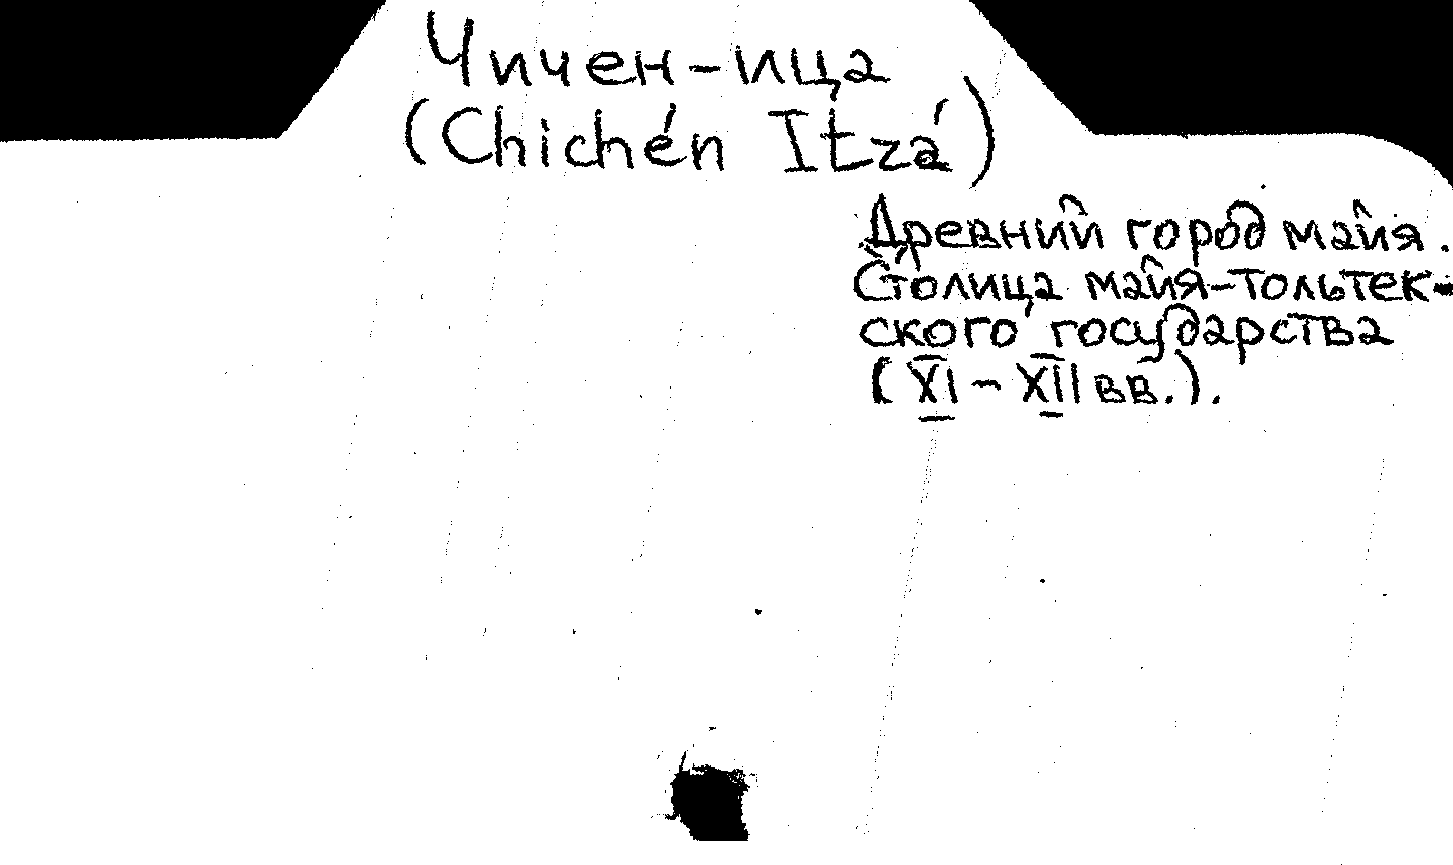 Чичен-ица
(Chichén Itzá)
Древний город майя.
Столица майя-тольтек-
ского государства
(XI - XII вв.).